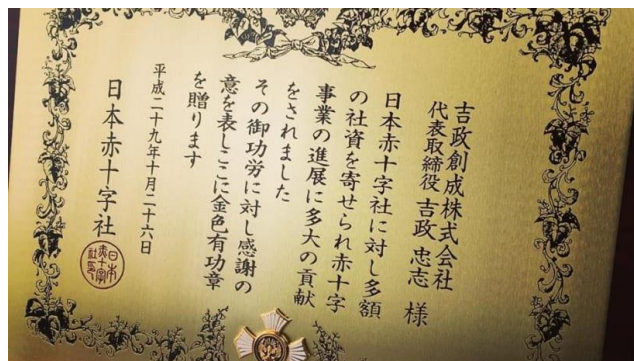 吉政創成株式会社
代表取締役 吉政 忠志 様
日本赤十字社に対し多額
の社資を寄せられ赤十字
事業の進展に多大の貢献
をされました
その御功労に対し感謝の
意を表しここに金色有功章
を贈ります
平成二十九年十月二十六日
日本赤十字社
日本
赤十字
社印